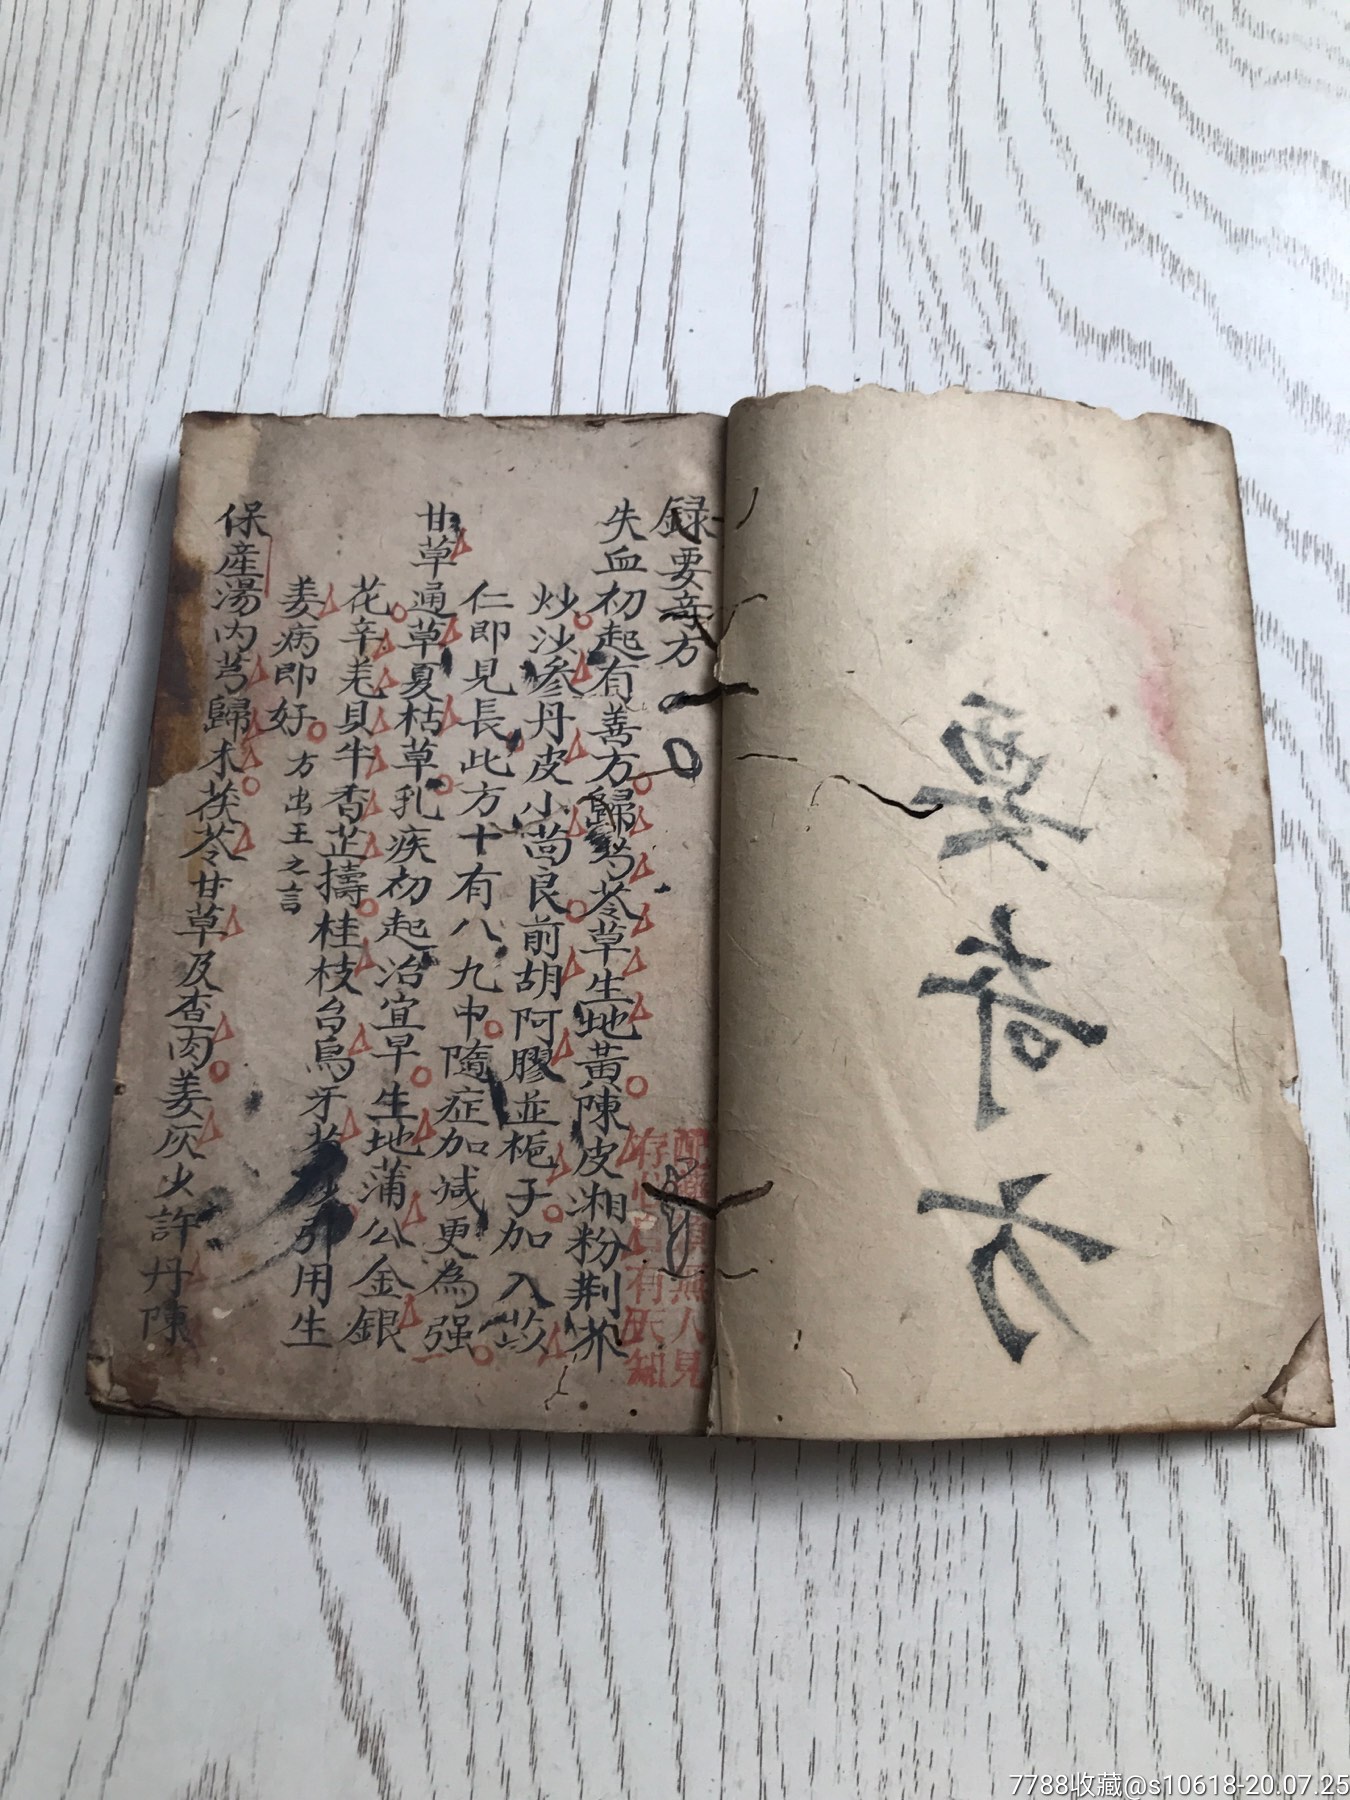 要奇方
録要竒方
失血初起有善方歸芍苓草生地黃陳皮湘粉荆芥
炒沙參丹皮小茴良前胡阿膠並梔子加入苡
仁即見長此方十有八九中隨症加减更為强
甘草通草夏枯草乳疾初起治宜早生地蒲公金銀
花辛羌貝牛香芷擣桂枝台烏牙引用生
姜病即好方出王之言
保產湯内芎歸术茯苓甘草及查肉姜灰火許丹陳
無人見
存心自有天知
7788收藏@s10618-20.07.25